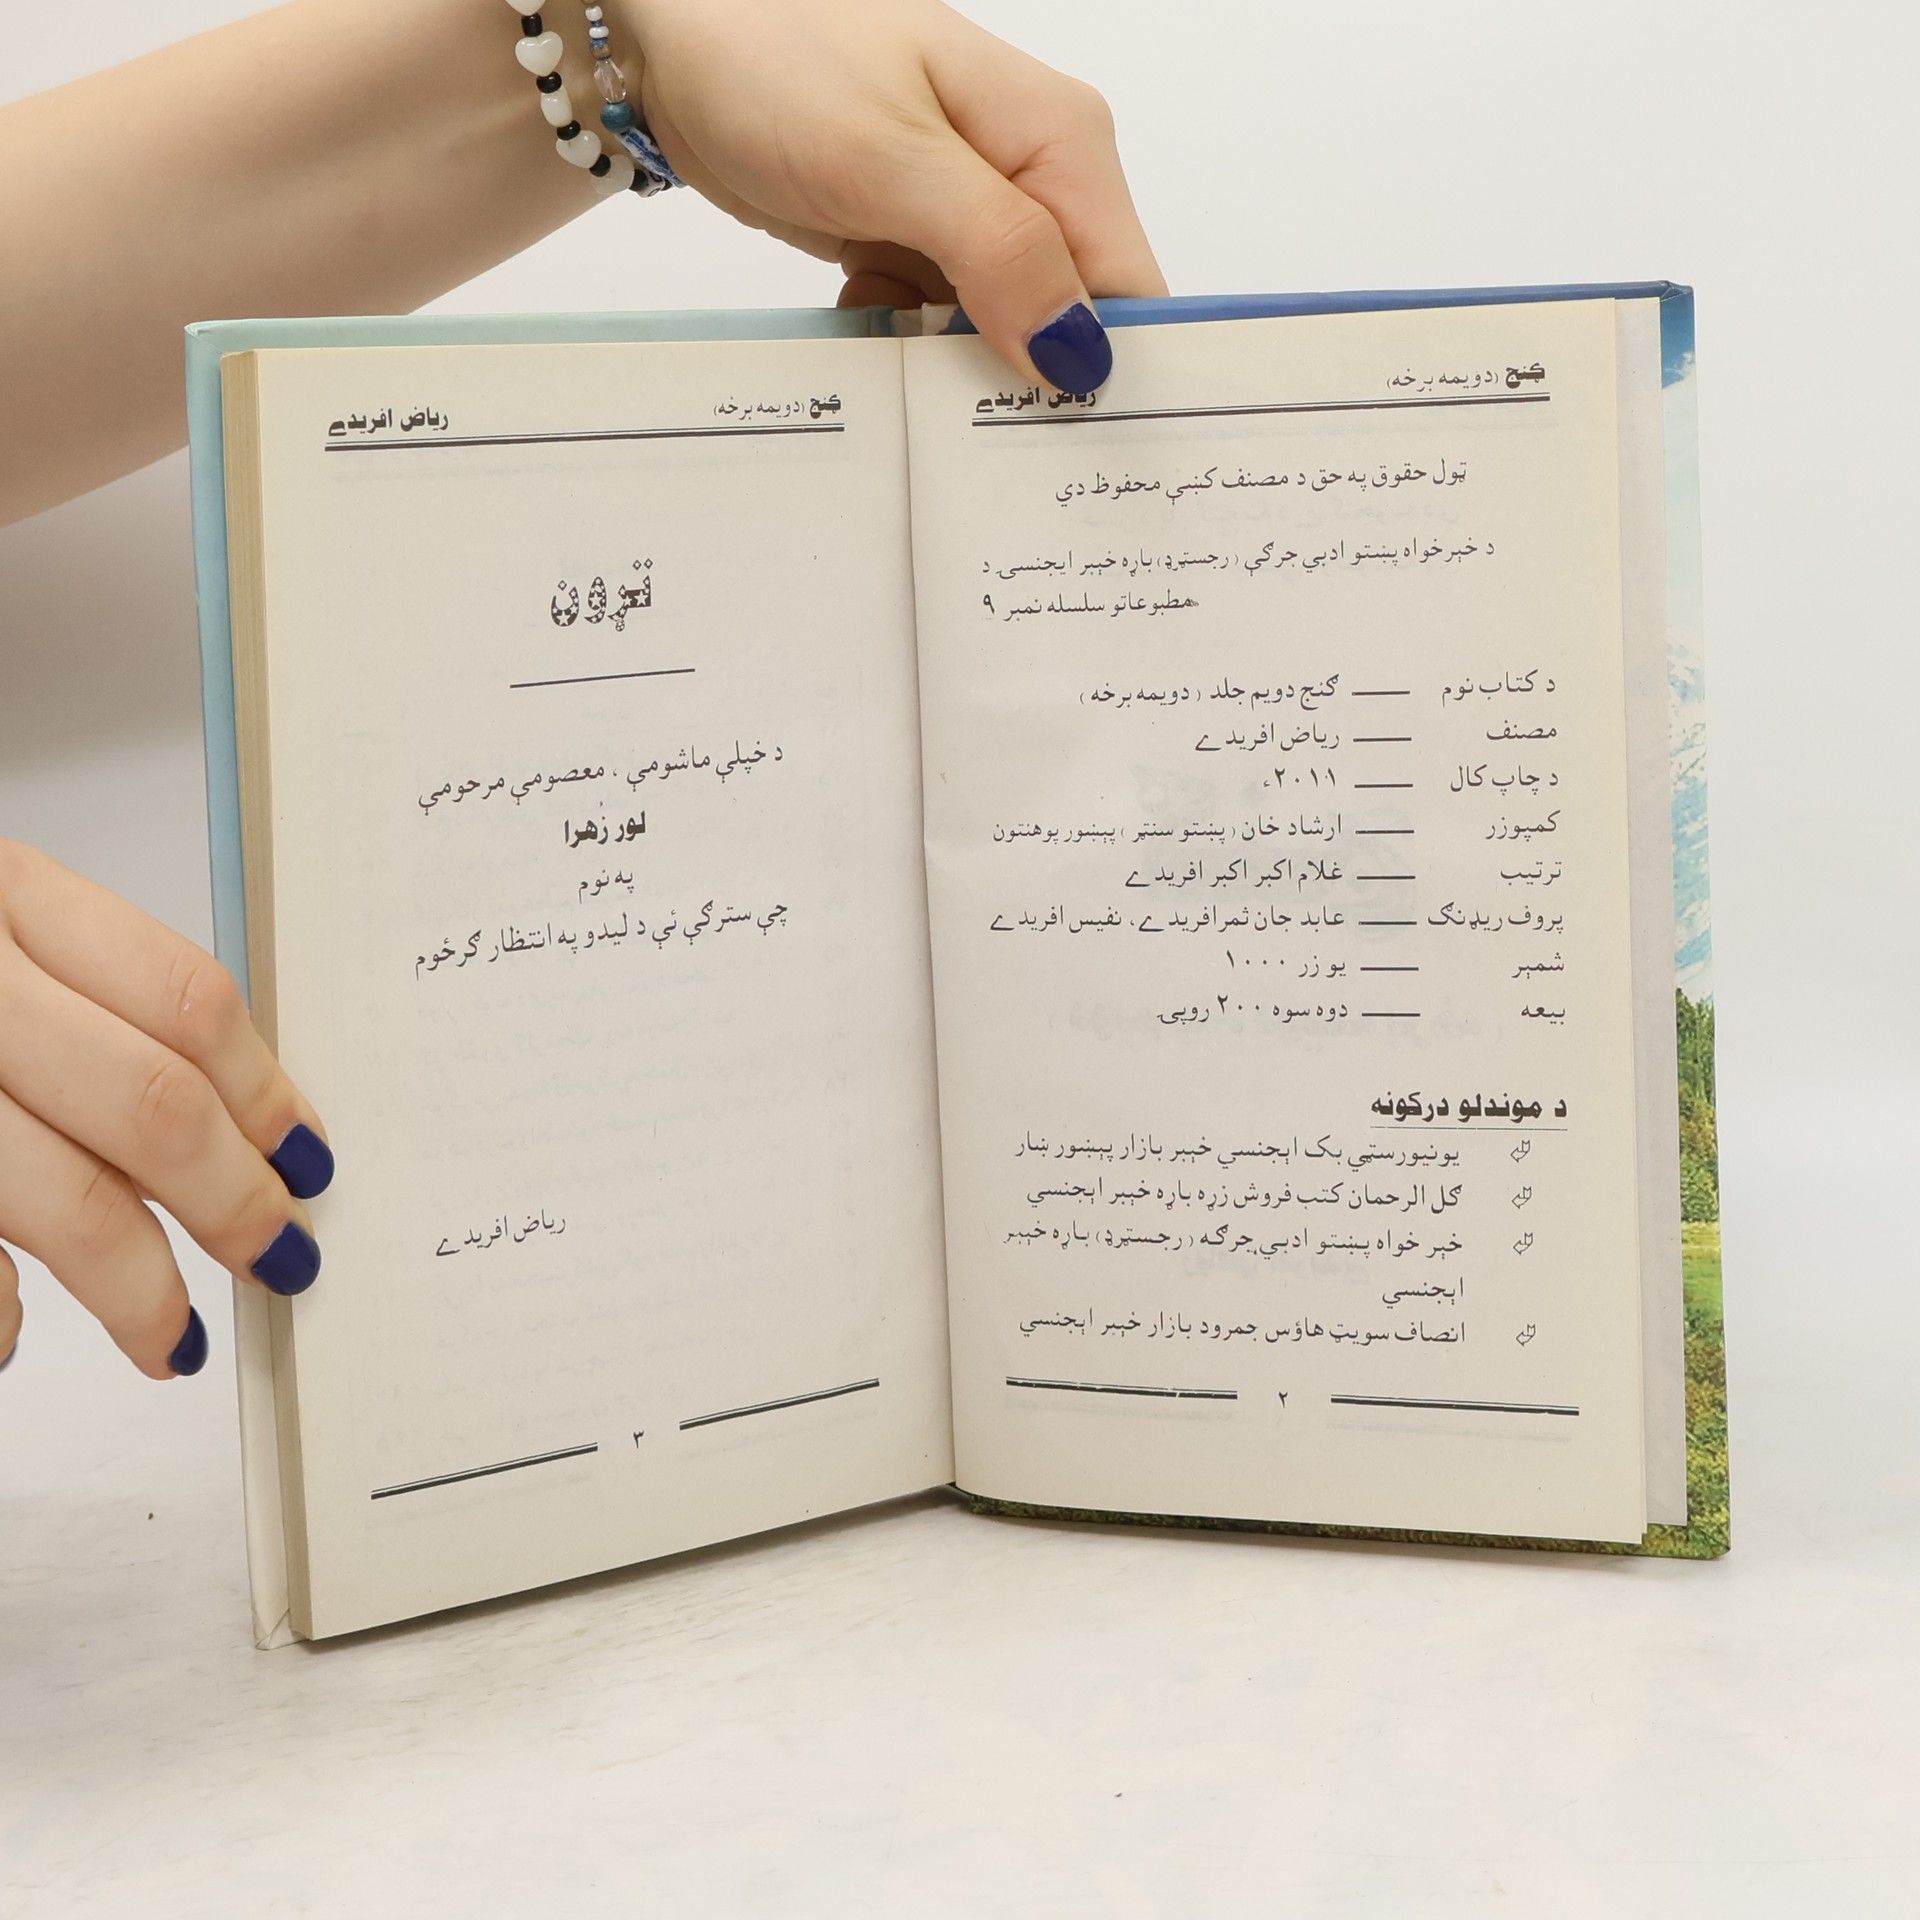 ګنج (دويمه برخه)
رياض افريدے
ټول حقوق په حق د مصنف کښې محفوظ دي
د خېبر خواه پښتو ادبي جرګې (رجسټرډ) باړه خېبر ايجنسۍ د
مطبوعاتو سلسله نمبر ۹
د کتاب نوم ـــــ ګنج دويم جلد (دويمه برخه)
مصنف ـــــ رياض افريدے
د چاپ کال ـــــ ۲۰۱۱ء
کمپوزر ـــــ ارشاد خان (پښتو سنټر) پېښور پوهنتون
ترتيب ـــــ غلام اکبر اکبر افريدے
پروف ريډنګ ـــــ عابد جان ثمر افريدے، نفيس افريدے
شمېر ـــــ يو زر ۱۰۰۰
بيعه ـــــ دوه سوه ۲۰۰ روپۍ
د موندلو درکونه
يونيورسټي بک اېجنسي خېبر بازار پېښور ښار
ګل الرحمان کتب فروش زړه باړه خېبر اېجنسي
خېبر خواه پښتو ادبي جرګه (رجسټرډ) باړه خېبر
اېجنسي
انصاف سويټ هاؤس جمرود بازار خېبر اېجنسي
۲
ګنج (دويمه برخه)
رياض افريدے
تړون
د خپلې ماشومې، معصومې مرحومې
لور زُهرا
په نوم
چې سترګې ئې د ليدو په انتظار ګرځوم
رياض افريدے
۳